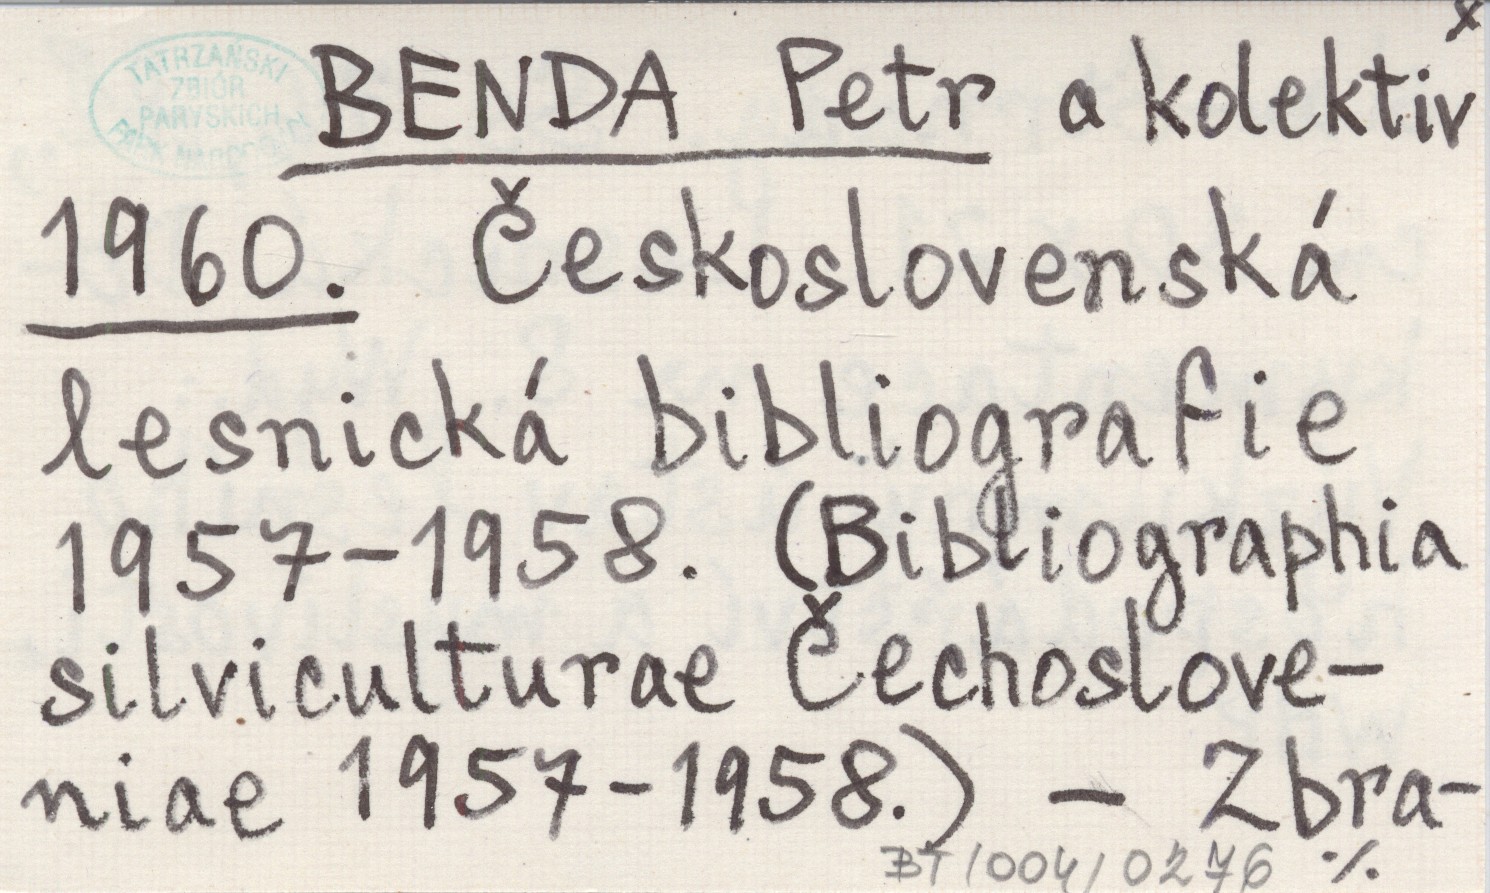 x
TATRZAŃSKI
ZBIÓR
PARYSKICH
BENDA Petr a kolektiv
1960. Československá
lesnická bibliografie
1957-1958. (Bibliographia
silviculturae Čechoslove-
niae 1957-1958.) - Zbra-
BT/004/0276 ./.